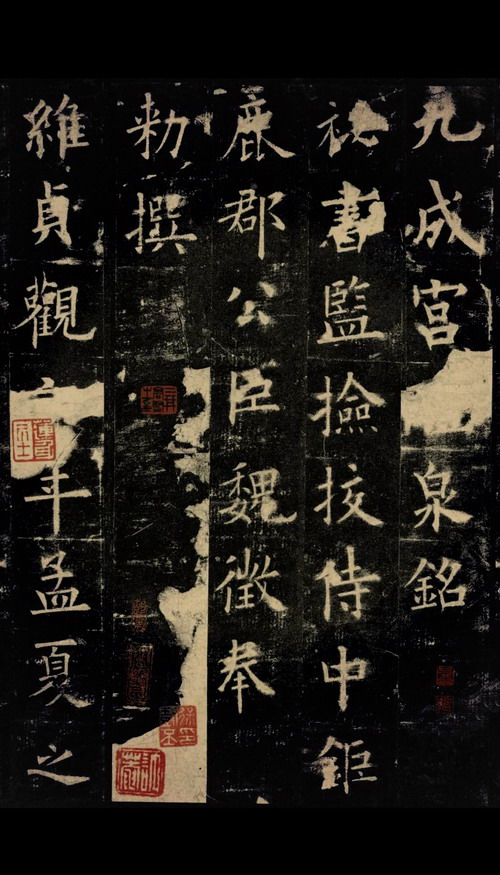 九成宮泉銘
祕書監撿挍侍中鉅
鹿郡公臣魏徵奉
勑撰
維貞觀年孟夏之